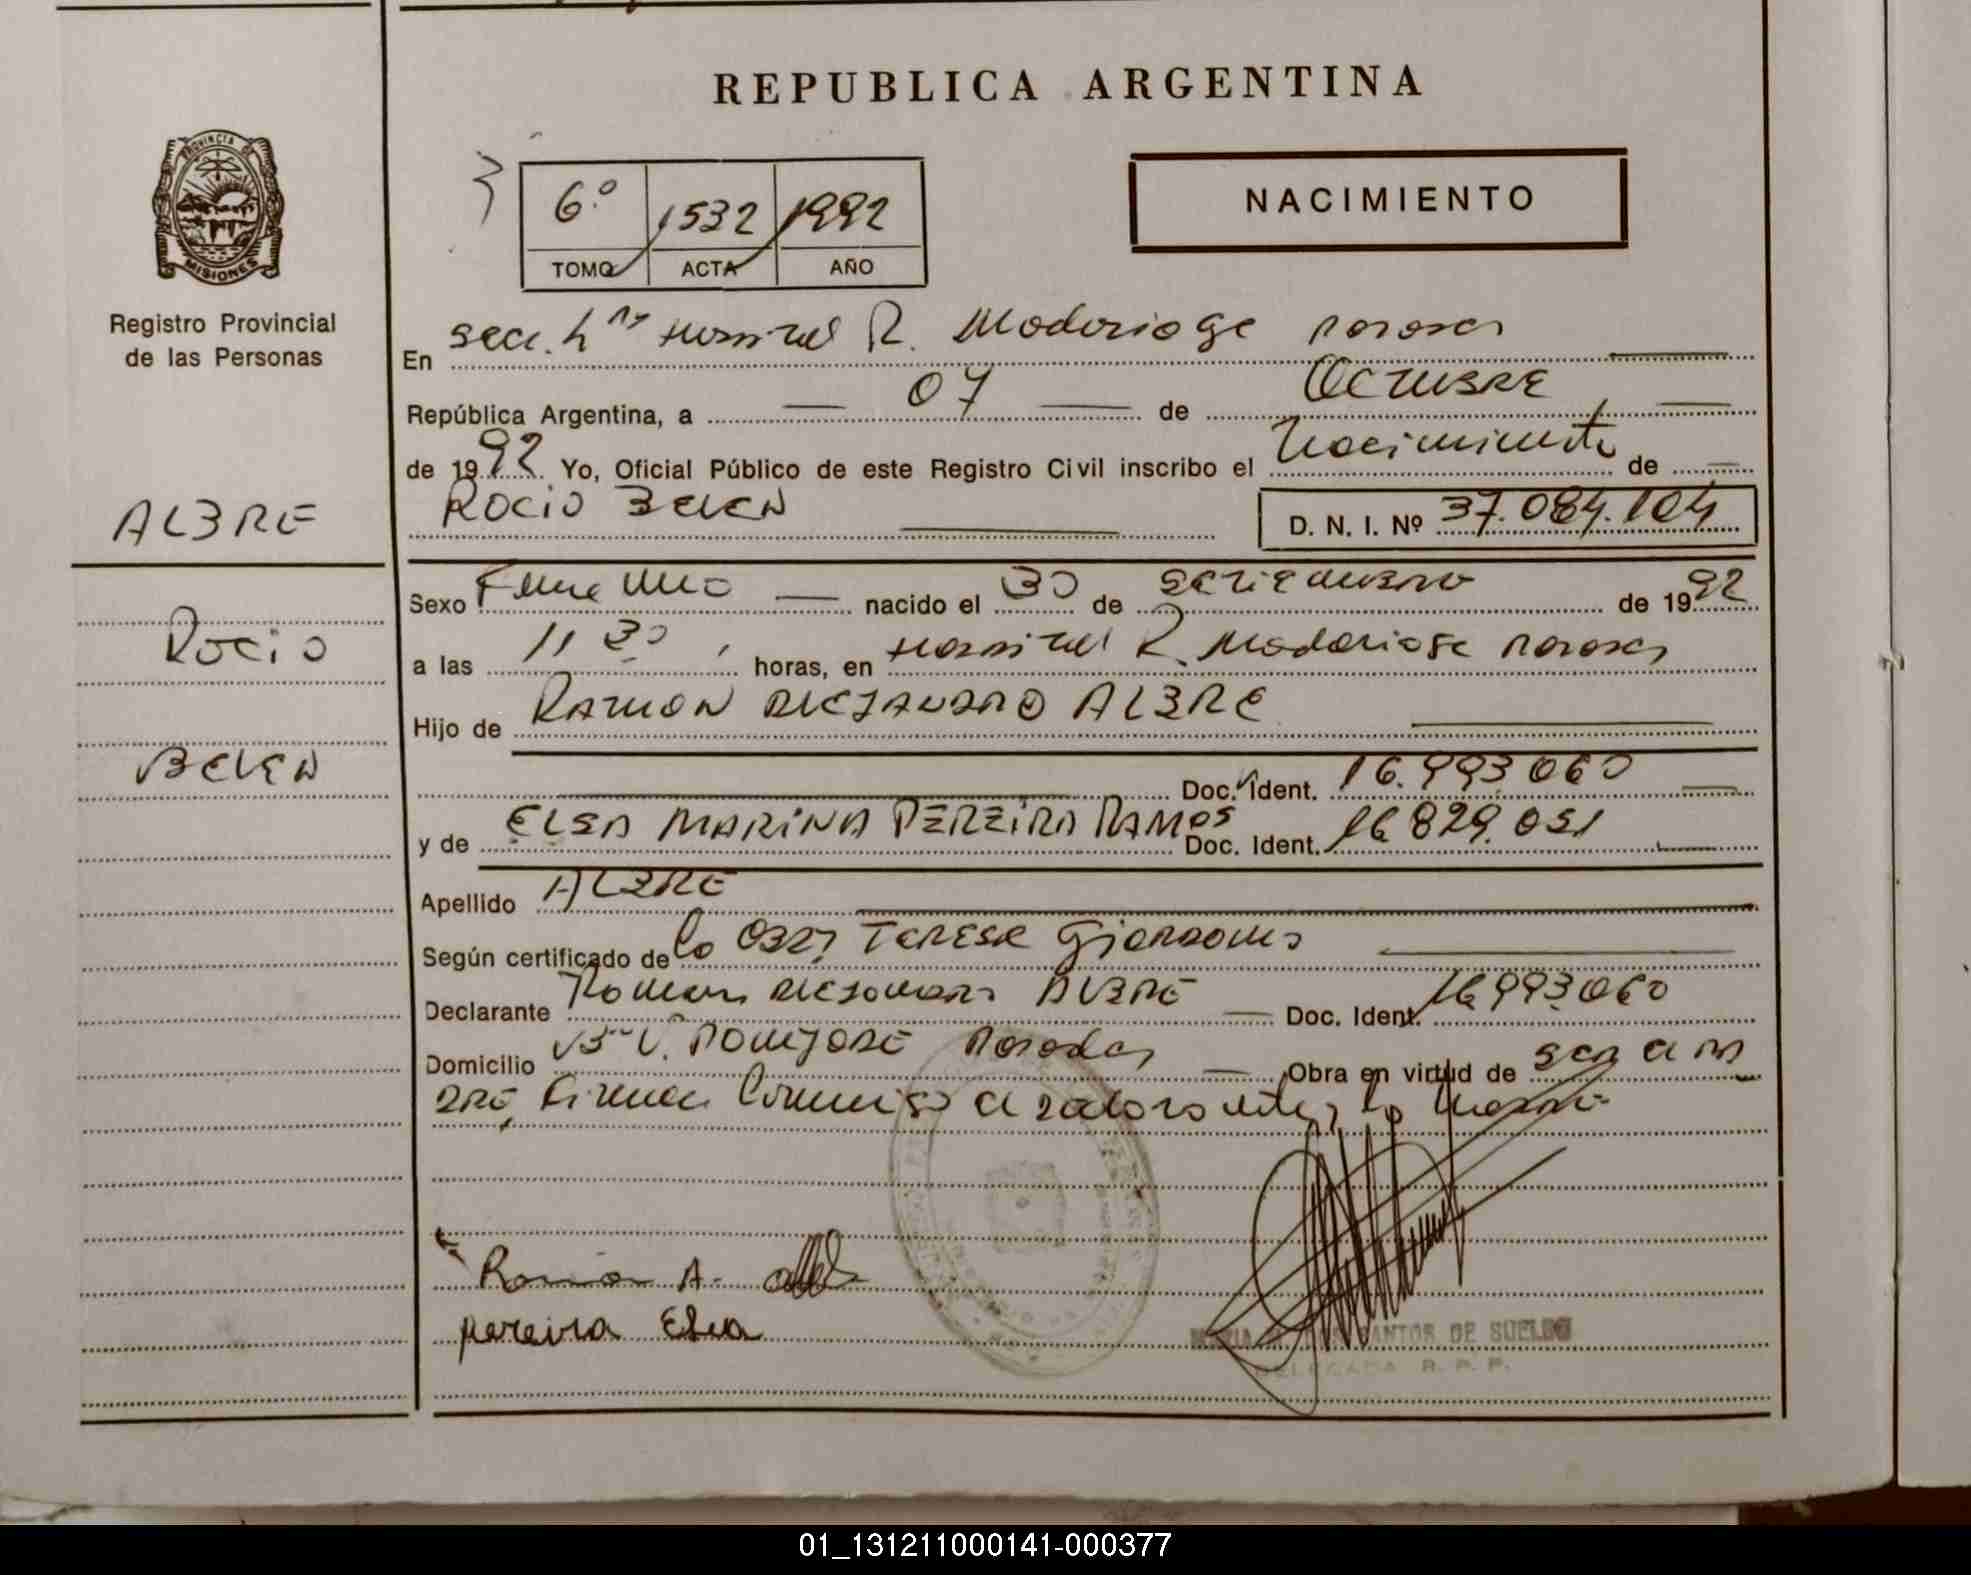 REPUBLICA ARGENTINA
PROVINCIA DE
MISIONES
Registro Provincial
de las Personas
6º 1532 1992
TOMO ACTA AÑO
NACIMIENTO
En Secc. Hospital R. Madariaga Posadas
República Argentina, a 07 de OCTUBRE
de 1992 Yo, Oficial Público de este Registro Civil inscribo el Nacimiento de
ROCIO BELEN D. N. I. Nº 37.084.104
ALBRE
ROCIO
BELEN
Sexo Femenino nacido el 30 de SETIEMBRE de 1992
a las 11 30 horas, en Hospital R. Madariaga Posadas
Hijo de RAMON ALEJANDRO ALBRE
Doc. Ident. 16.993.060
y de ELSA MARINA PEREIRA RAMOS Doc. Ident. 16.829.051
Apellido ALBRE
Según certificado de la OBST TERESA
Declarante Ramon Alejandro ALBRE Doc. Ident. 16993060
Domicilio Bº V. Posadas Obra en virtud de ser el PA
DRE, Firman
Ramon A.
pereira Elsa
SANTOS DE SUELDO
DELEGADA R. P. P.
01_131211000141-000377